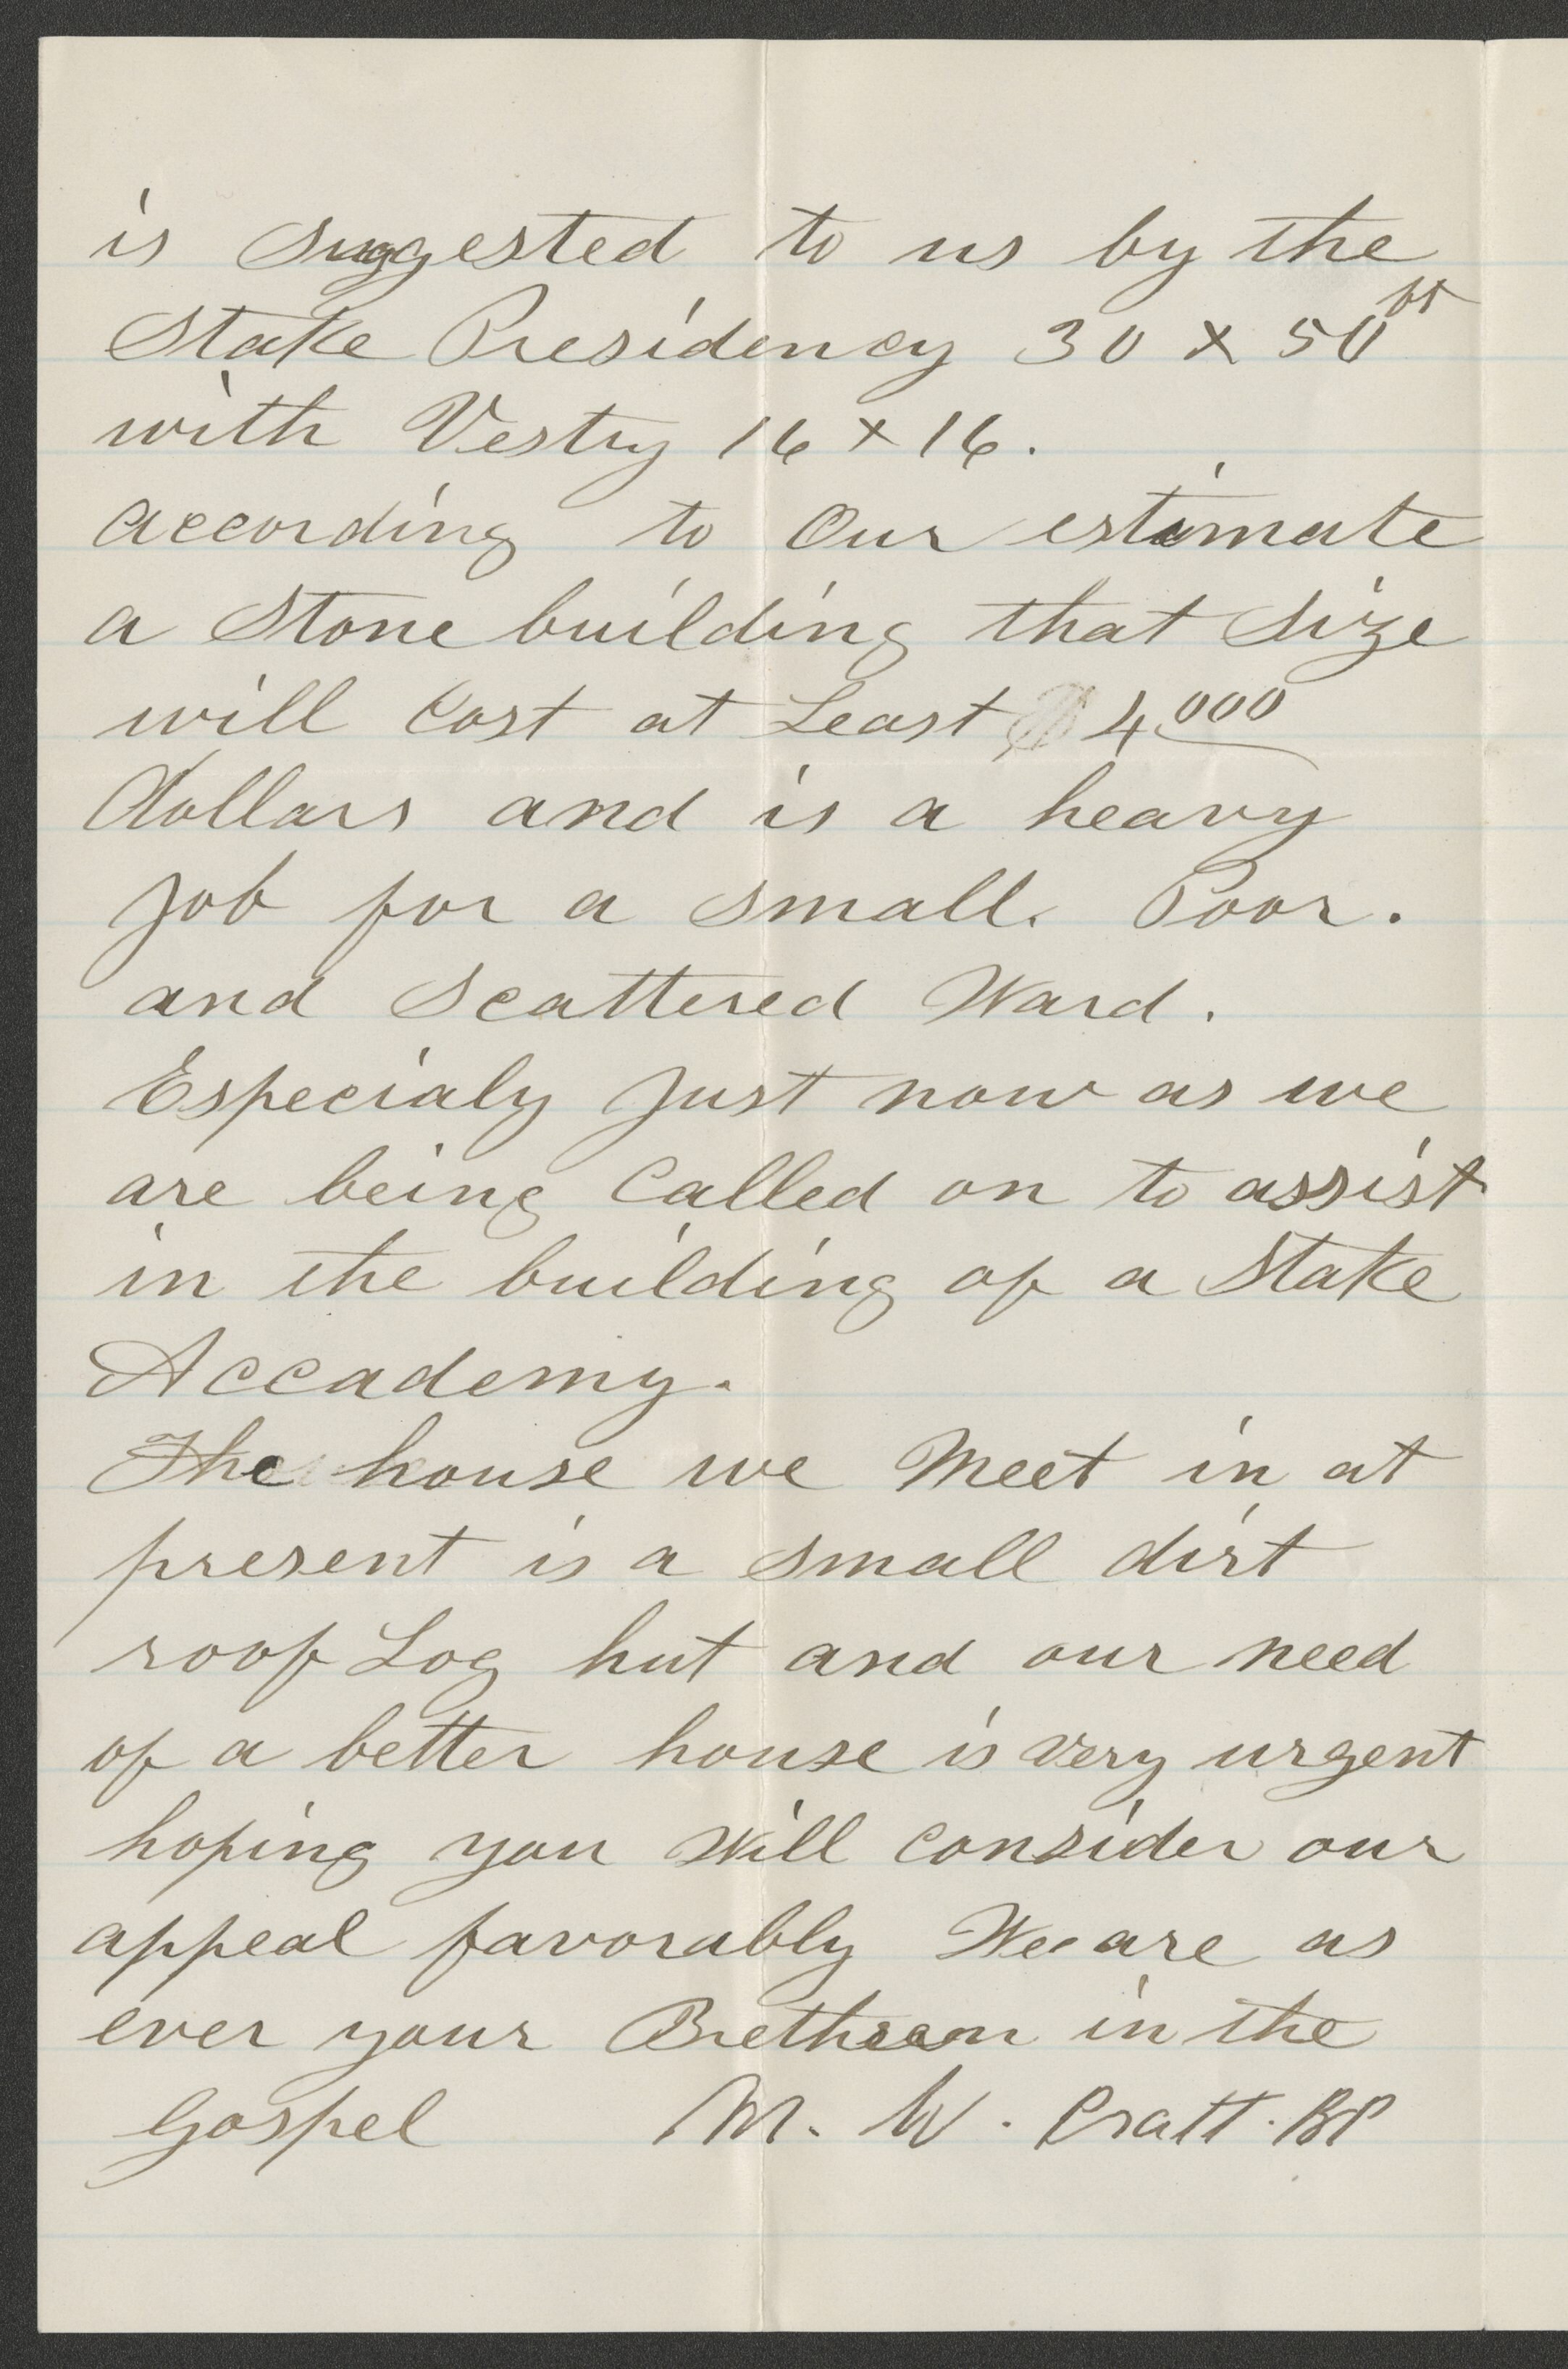 is suggested to us by the
Stake Presidency 30 x 50 ft
with Vestry 16 x 16.
according to Our estimate
a Stone building that Size
will Cost at Least 4000
dollars and is a heavy
Job for a small. Poor.
and Scattered Ward.
Especialy Just now as we
are being Called on to assist
in the building of a Stake
Accademy.
The house we Meet in at
present is a small dirt
roof Log hut and our need
of a better house is very urgent
hoping you Will Consider our
appeal favorably We are as
ever your Brethren in the
Gospel M. W. Pratt. BP